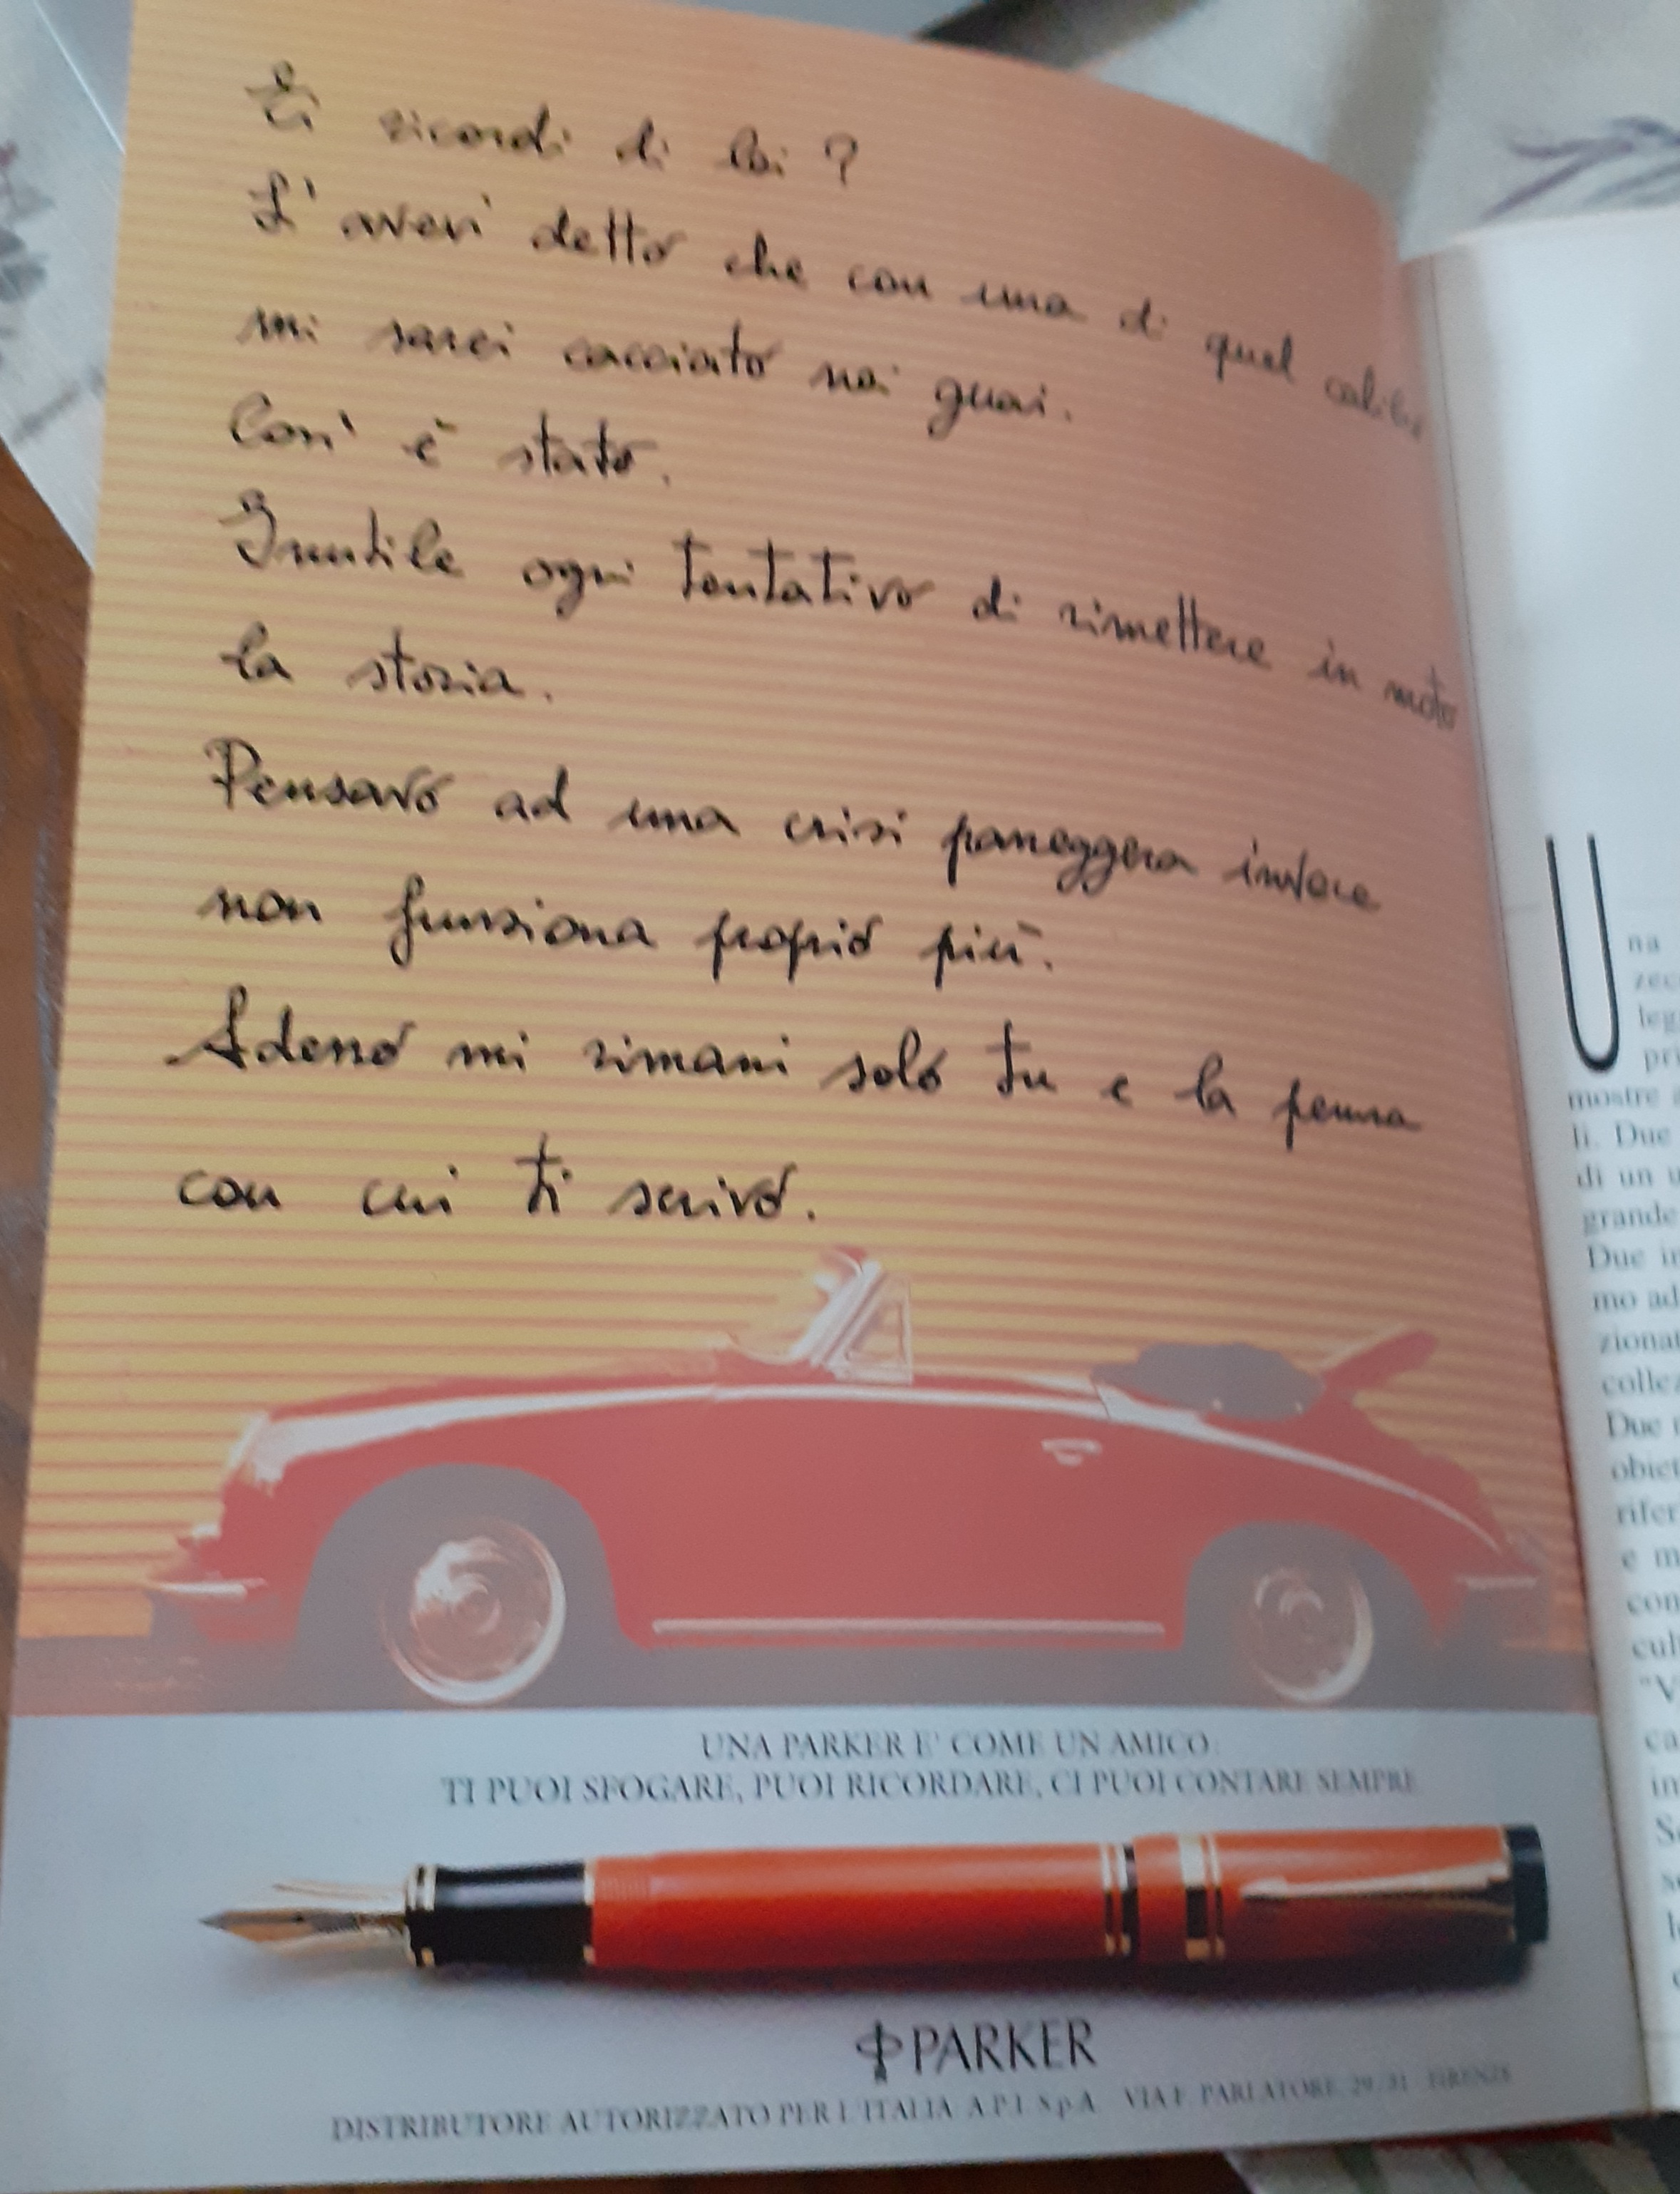 Ti ricordi di lei ?
L' averi detto che con una di quel calibro
mi sarei cacciato nei guai.
Cosi' è stato.
Inutile ogni tentativo di rimettere in moto
la storia.
Pensavo ad una crisi passeggera invece
non funziona proprio più.
Adesso mi rimani solo tu e la penna
con cui ti scrivo.
UNA PARKER E' COME UN AMICO.
TI PUOI SFOGARE, PUOI RICORDARE, CI PUOI CONTARE SEMPRE
PARKER
DISTRIBUTORE AUTORIZZATO PER L'ITALIA A.P.I. S.p.A. VIA F. PARLATORE 29/31 FIRENZE
Una
mostre
li. Due
di un
grande
Due
mo
Due
e